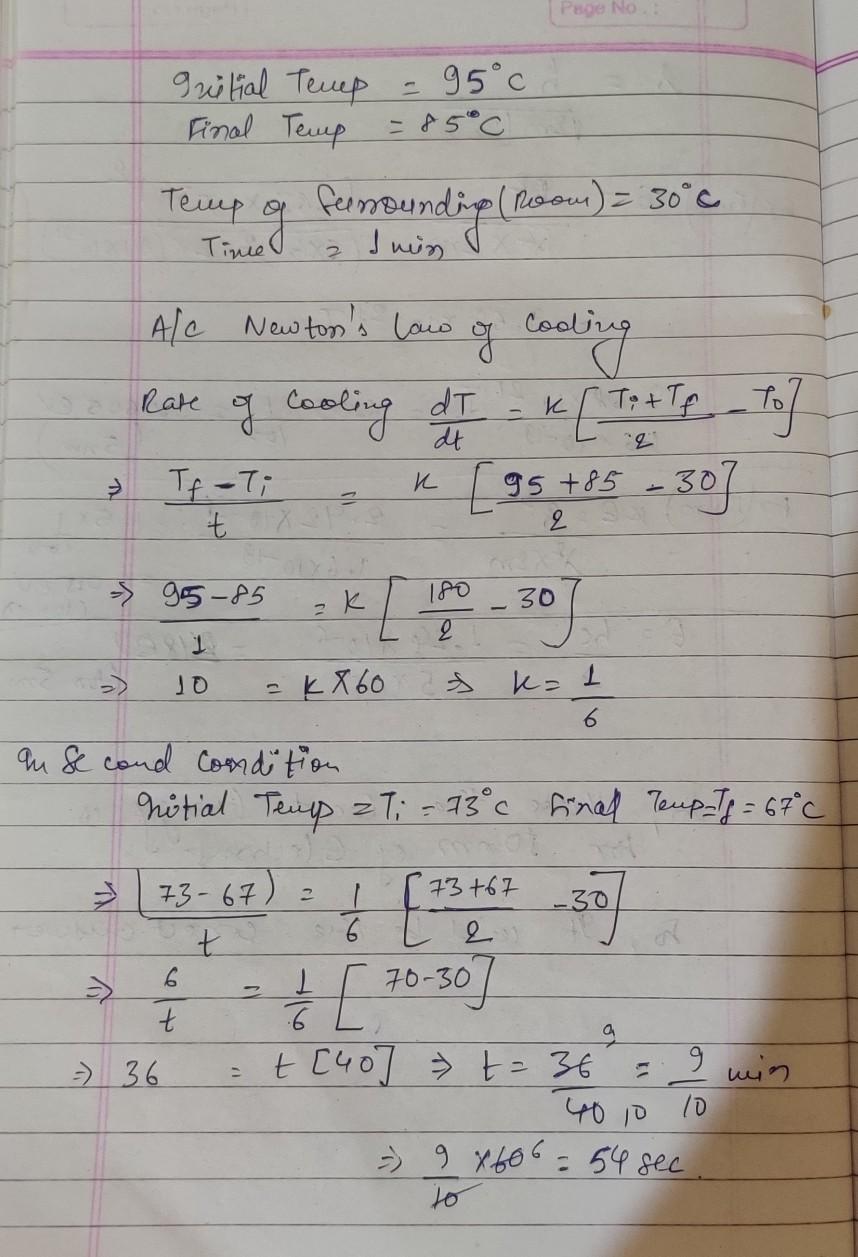 Page No. :
Initial Temp = 95°C
Final Temp = 85°C
Temp of Surrounding (Room) = 30°C
Time = 1 min
A/c Newton's law of Cooling
Rate of Cooling dT/dt = K [ (Ti + Tf)/2 - T0 ]
⇒ (Tf - Ti)/t = K [ (95 + 85)/2 - 30 ]
⇒ (95 - 85)/1 = K [ 180/2 - 30 ]
⇒ 10 = K × 60 ⇒ K = 1/6
In Second Condition
Initial Temp = Ti = 73°C Final Temp = Tf = 67°C
⇒ (73 - 67)/t = 1/6 [ (73 + 67)/2 - 30 ]
⇒ 6/t = 1/6 [ 70 - 30 ]
⇒ 36 = t [40] ⇒ t = 36 9/40 10 = 9/10 min
⇒ 9/10 × 60 6 = 54 sec.